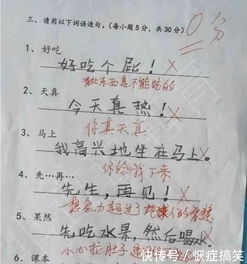 三、请用以下词语造句。(每小题5分，共30分)
0分
1、好吃
好吃个屁！
此东西是不能吃的
2、天真
今天真热！
你真天真
3、马上
我高兴地坐在马上。
你给我下来
4、先…再…
先生，再见！
5、果然
先吃水果，然后喝水
小心拉肚子
6、课本
快传号/怀症搞笑